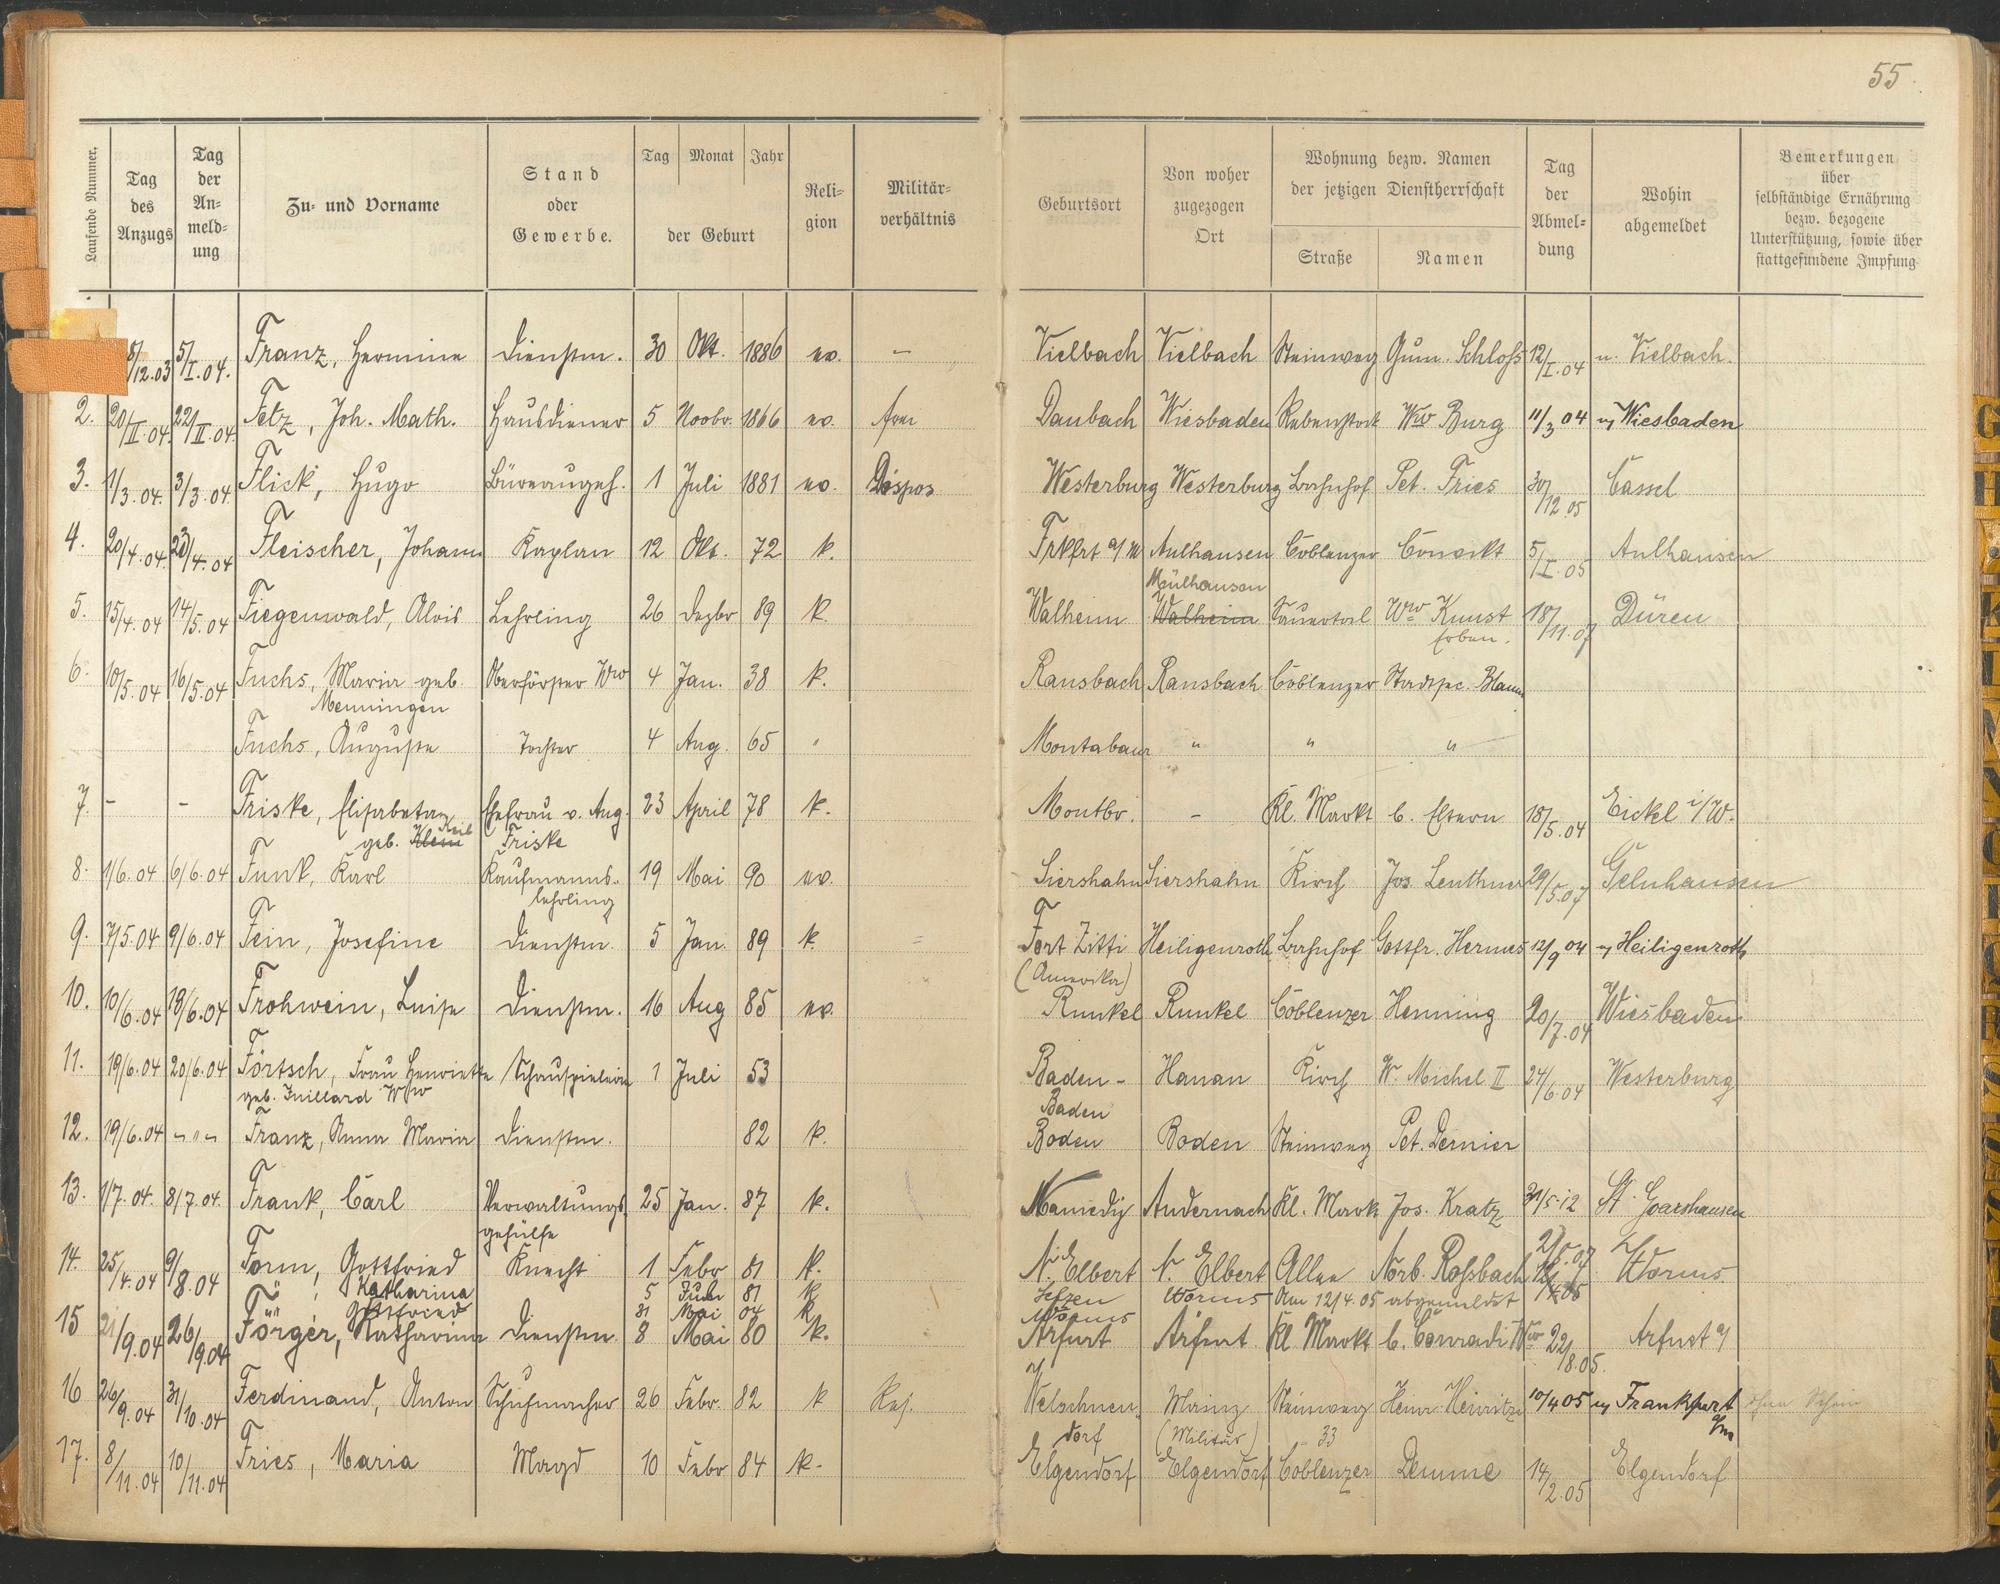 55.
Laufende Nummer. Tag des Anzugs Tag der Anmeldung Zu- und Vorname Stand oder Gewerbe. Tag Monat Jahr der Geburt Religion Militärverhältnis Geburtsort Von woher zugezogen Ort Wohnung bezw. Namen der jetzigen Dienstherrschaft Straße Namen Tag der Abmeldung Wohin abgemeldet Bemerkungen über selbständige Ernährung bezw. bezogene Unterstützung, sowie über stattgefundene Impfung
/12.03 5/I.04. Franz, Hermine Dienstm. 30 Okt. 1886 ev. – Vielbach Vielbach Steinweg Gum. Schloss 12/I.04 n. Vielbach.
2. 20/II.04. 22/II.04. Fetz, Joh. Math. Hausdiener 5 Novbr. 1866 ev. frei Daubach Wiesbaden Rebenstock Ww Burg 11/3 04 n/ Wiesbaden
3. 1/3.04. 3/3.04. Flick, Hugo Büreaugeh. 1 Juli 1881 ev. Dispos Westerburg Westerburg Bahnhof Pet. Fries 30/12.05 Cassel
4. 20/4.04. 23/4.04 Fleischer, Johann Kaplan 12 Okt. 72 k. Frkfrt a/M Aulhausen Coblenzer Convikt 5/I.05 Aulhausen
5. 15/4.04 14/5.04 Fiegenwald, Alois Lehrling 26 Dezbr 89 k. Walheim Mülhausen Walheim Sauertal Ww Kunst Erben. 18/11.07 Düren
6. 10/5.04 16/5.04 Fuchs, Maria geb. Menningen Oberförster Ww 4 Jan. 38 k. Ransbach Ransbach Coblenzer Stadtsec. Blaum
Fuchs, Auguste Tochter 4 Aug. 65 " Montabaur " " "
7. – – Friske, Elisabeta geb. Klein Ehefrau v. Aug. Friske 23 April 78 k. Montbr. – Kl. Markt b. Eltern 18/5.04 Eickel i/W.
8. 1/6.04 6/6.04 Funk, Karl Kaufmannslehrling 19 Mai 90 ev. Siershahn Siershahn Kirch Jos. Leuthner 29/5.07 Gelnhausen
9. 7/5.04 9/6.04 Fein, Josefine Dienstm. 5 Jan. 89 k. Fort Zitti (Amerika) Heiligenroth Bahnhof Gottfr. Hermes 12/9 04 n/ Heiligenroth
10. 10/6.04 18/6.04 Frohwein, Luise Dienstm. 16 Aug 85 ev. Runkel Runkel Coblenzer Henning 20/7.04 Wiesbaden
11. 19/6.04 20/6.04 Förtsch, Frau Henriette geb. Juillard Ww Schauspielerin 1 Juli 53 Baden-Baden Hanau Kirch W. Michel II 24/6.04 Westerburg
12. 19/6.04 " Franz, Anna Maria Dienstm. 82 k. Boden Boden Steinweg Pet. Dernier
13. 1/7.04. 8/7.04. Frank, Carl Verwaltungsgehülfe 25 Jan. 87 k. Namedy Andernach Kl. Markt Jos. Kratz 31/5.12 St. Goarshausen
14. 25/4.04 9/8.04 Form, Gottfried Knecht 1 Febr 81 k. N. Elbert N. Elbert Allee Norb. Roßbach Worms
" , Katharina 5 81 k Worms Am 12/4.05 abgemeldet
" Gottfried 31 Mai 04 k Worms
15 21/9.04 26/9.04 Förger, Katharina Dienstm. 8 Mai 80 k. Arfurt Arfurt Kl Markt b. Conradi Ww 22/8.05. Arfurt a/
16 26/9.04 31/10.04 Ferdinand, Anton Schuhmacher 26 Febr. 82 k Res. Welschneudorf Mainz (Militär) Steinweg 33 Heinr. Heinritzi 10/4 05 n/ Frankfurt a/m ohne Schein
17. 8/11.04 10/11.04 Fries, Maria Magd 10 Febr 84 k. Elgendorf Elgendorf Coblenzer Demme 14/2.05 Elgendorf